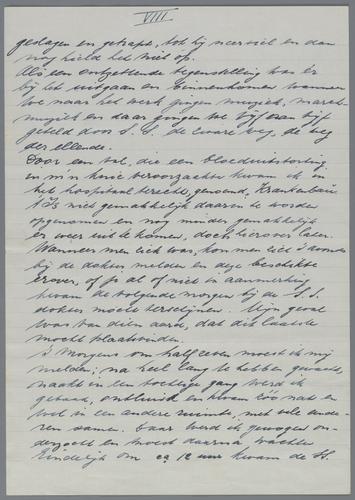 VIII
geslagen en getrapt, tot hij neerviel en dan
nog hield het niet op.
Als een ontzettende tegenstelling was er
bij het uitgaan en binnenkomen wanneer
we naar het werk gingen muziek, marsch-
muziek en daar gingen we vijf aan vijf
geteld door S.S. de zware weg, de weg
der ellende.
Door een val, die een bloeduitstorting
in m'n knie veroorzaakte kwam ik in
het hospitaal terecht, genoemd Krankenbau
't Is niet gemakkelijk daarin te worden
opgenomen en nog minder gemakkelijk
er weer uit te komen, doch hierover later.
Wanneer men ziek was, kon men zich 's avonds
bij de dokter melden en deze beschikte
erover, of je al of niet in aanmerking
kwam de volgende morgen bij de S.S.
dokter moest verschijnen. Mijn geval
was van dien aard, dat dit laatste
moest plaatsvinden.
's Morgens om half zeven moest ik mij
melden; na heel lang te hebben gewacht,
naakt in een tochtige gang werd ik
gebaad, ontluisd en kwam zóó nat en
wel in een andere ruimte, met vele ande-
ren samen. Daar werd ik gewogen on-
derzocht en moest daarna wachten
Eindelijk om ca 12 uur kwam de SS.